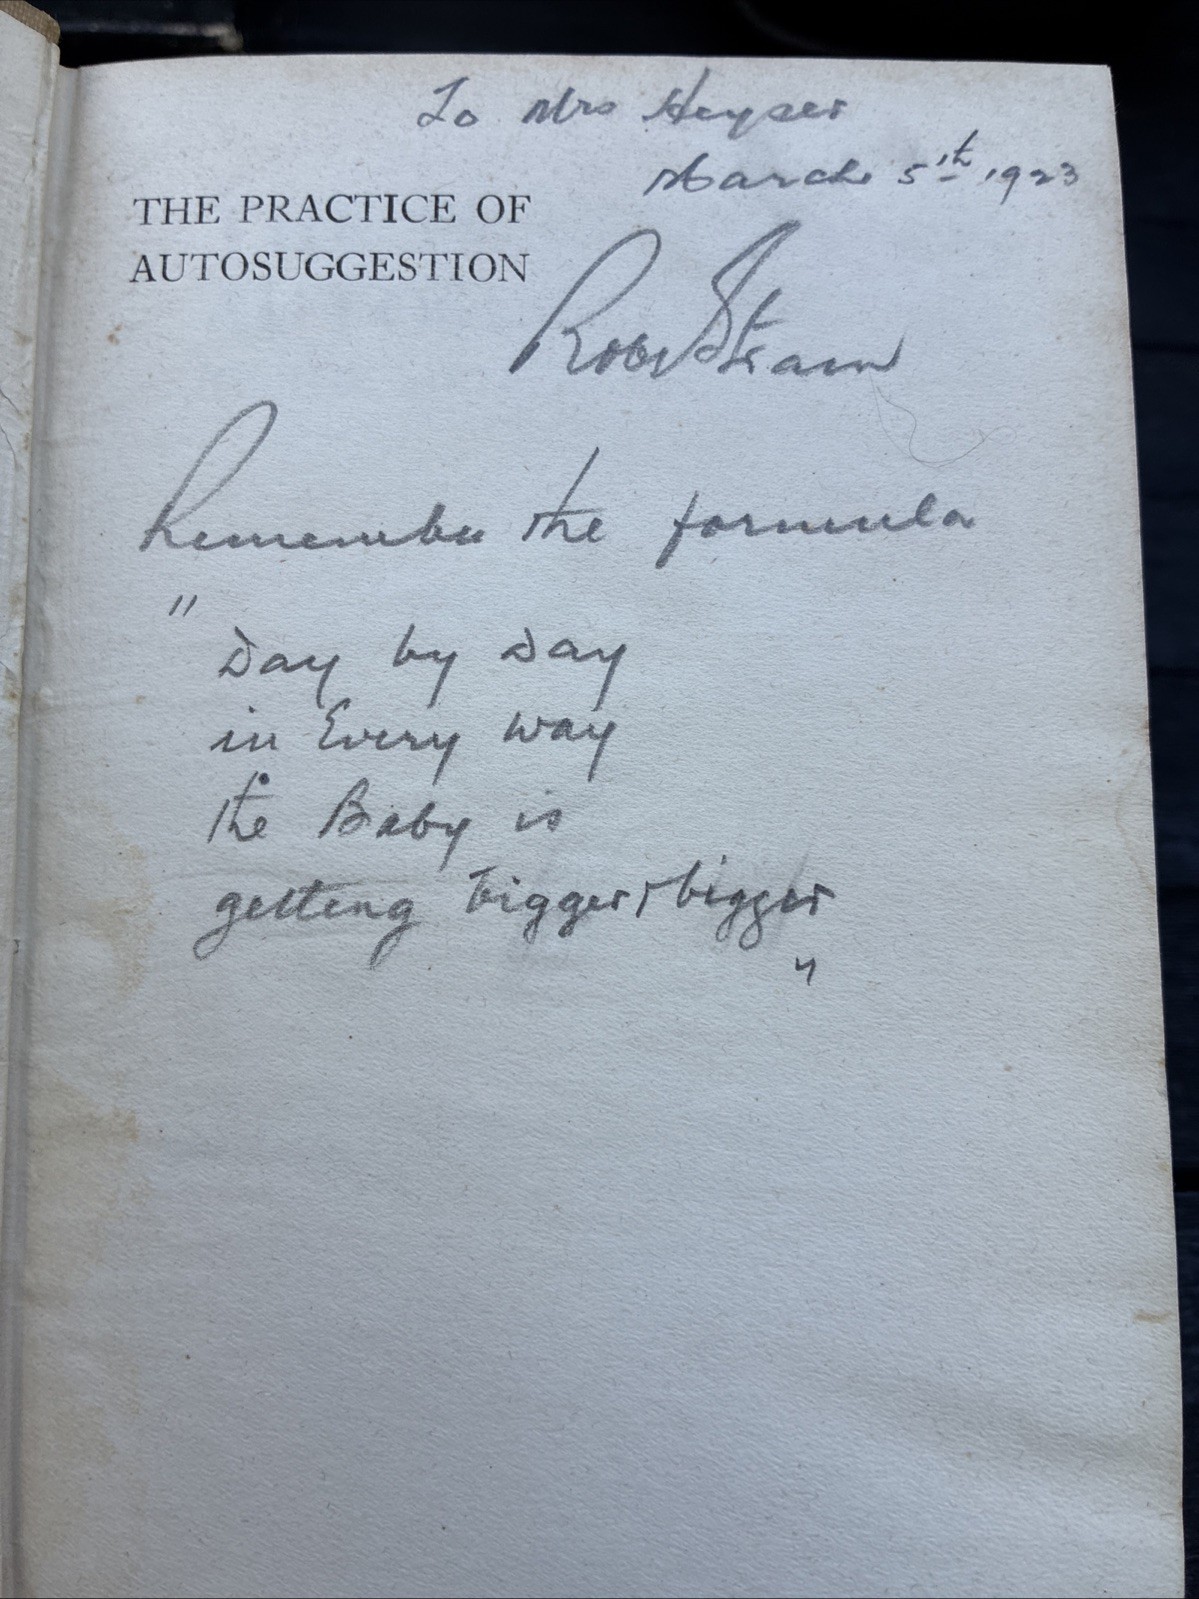 To Mrs Heyser
March 5th 1923
THE PRACTICE OF
AUTOSUGGESTION
Robt Strain
Remember the formula
"
Day by Day
in Every way
the Baby is
getting bigger & bigger
"